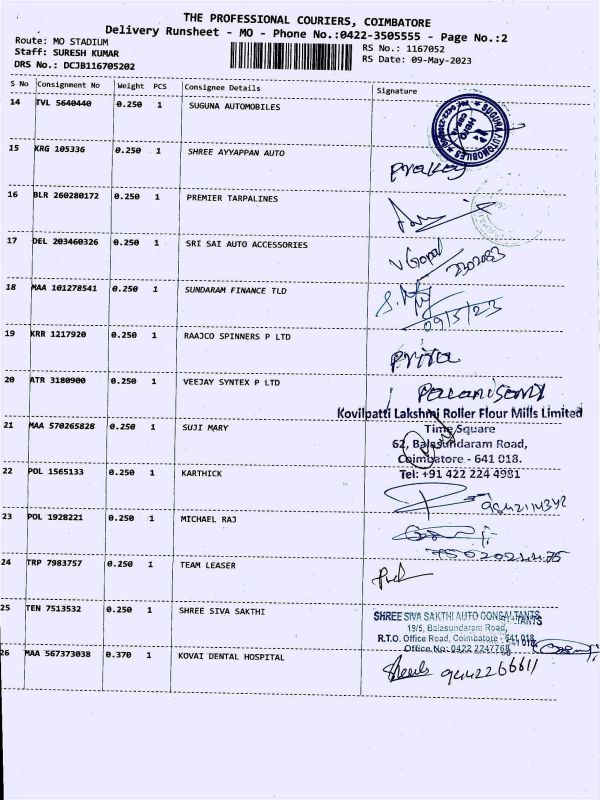 THE PROFESSIONAL COURIERS, COIMBATORE
Delivery Runsheet - MO - Phone No.:0422-3505555 - Page No.:2
Route: MO STADIUM
Staff: SURESH KUMAR
DRS No.: DCJB116705202
RS No.: 1167052
RS Date: 09-May-2023
S No Consignment No Weight PCS Consignee Details Signature
14 TVL 5640440 0.250 1 SUGUNA AUTOMOBILES
SUGUNA AUTOMOBILES
15 KRG 105336 0.250 1 SHREE AYYAPPAN AUTO
16 BLR 260280172 0.250 1 PREMIER TARPALINES
17 DEL 203460326 0.250 1 SRI SAI AUTO ACCESSORIES
V Gopal
18 MAA 101278541 0.250 1 SUNDARAM FINANCE TLD
09/5/23
19 KRR 1217920 0.250 1 RAAJCO SPINNERS P LTD
Priya
20 ATR 3180900 0.250 1 VEEJAY SYNTEX P LTD
Palanisamy
Kovilpatti Lakshmi Roller Flour Mills Limited
21 MAA 570265828 0.250 1 SUJI MARY
Time Square
62, Balasundaram Road,
Coimbatore - 641 018.
Tel: +91 422 224 4981
22 POL 1565133 0.250 1 KARTHICK
23 POL 1928221 0.250 1 MICHAEL RAJ
24 TRP 7983757 0.250 1 TEAM LEASER
25 TEN 7513532 0.250 1 SHREE SIVA SAKTHI
SHREE SIVA SAKTHI AUTO CONSALTANTS
19/5, Balasundaram Road,
R.T.O. Office Road, Coimbatore - 641 018
Office No: 0422 2247768
26 MAA 567373038 0.370 1 KOVAI DENTAL HOSPITAL
9442266611